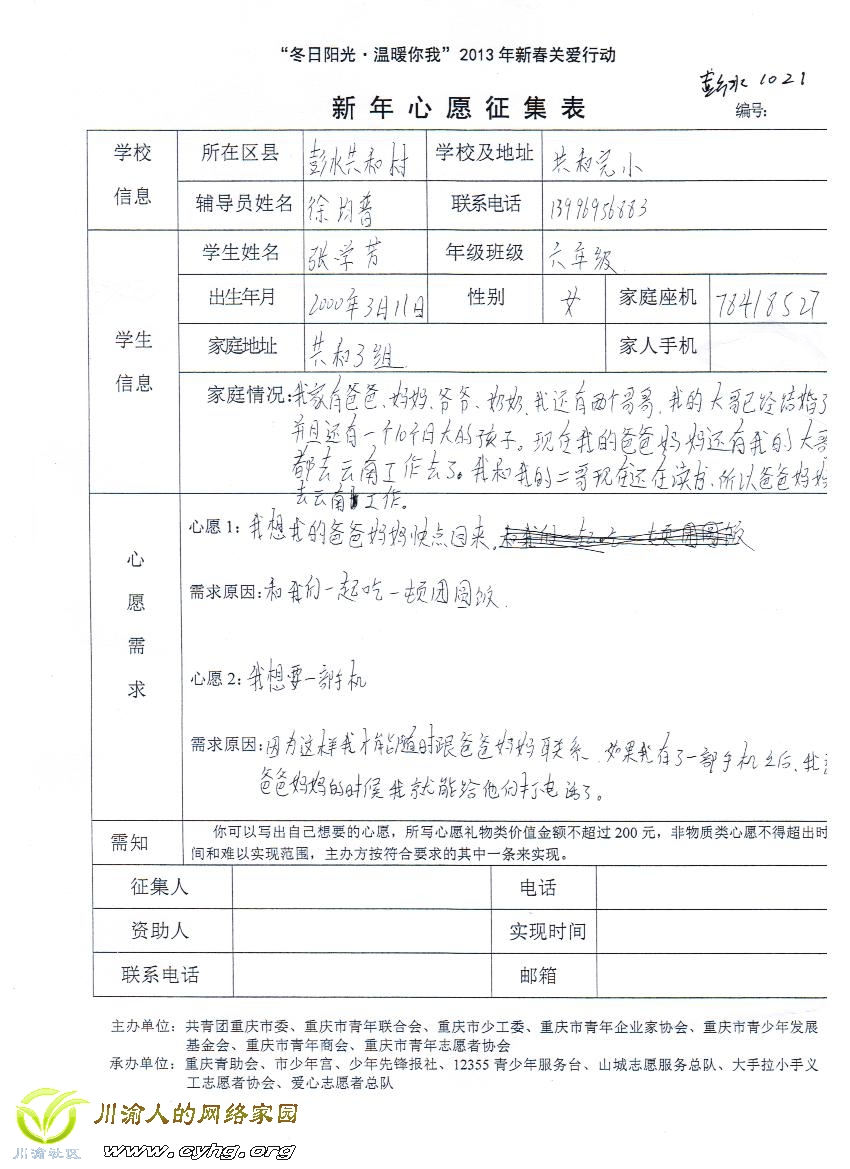 “冬日阳光·温暖你我”2013年新春关爱行动
彭水 1021
新年心愿征集表
编号:
学校信息 所在区县 彭水共和村 学校及地址 共和完小
辅导员姓名 徐均普 联系电话 13996956883
学生姓名 张学芳 年级班级 六年级
出生年月 2000年3月11日 性别 女 家庭座机 78418527
学生信息
家庭地址 共和3组 家人手机
家庭情况:我家有爸爸、妈妈、爷爷、奶奶,我还有两个哥哥,我的大哥已经结婚了
并且还有一个10个月大的孩子。现在我的爸爸妈妈还有我的大哥
都去云南工作去了。我和我的二哥现在还在读书,所以爸爸妈妈
去云南工作。
心愿需求
心愿1:我想我的爸爸妈妈快点回来,和我们一起吃一顿团圆饭
需求原因:和我们一起吃一顿团圆饭.
心愿2:我想要一部手机
需求原因:因为这样我才能随时跟爸爸妈妈联系.如果我有了一部手机之后,我
爸爸妈妈的时候我就能给他们打电话了。
需知 你可以写出自己想要的心愿，所写心愿礼物类价值金额不超过200元，非物质类心愿不得超出时
间和难以实现范围，主办方按符合要求的其中一条来实现。
征集人 电话
资助人 实现时间
联系电话 邮箱
主办单位：共青团重庆市委、重庆市青年联合会、重庆市少工委、重庆市青年企业家协会、重庆市青少年发展
基金会、重庆市青年商会、重庆市青年志愿者协会
承办单位：重庆青助会、市少年宫、少年先锋报社、12355青少年服务台、山城志愿服务总队、大手拉小手义
工志愿者协会、爱心志愿者总队
川渝人的网络家园
川渝社区 www.cyhg.org